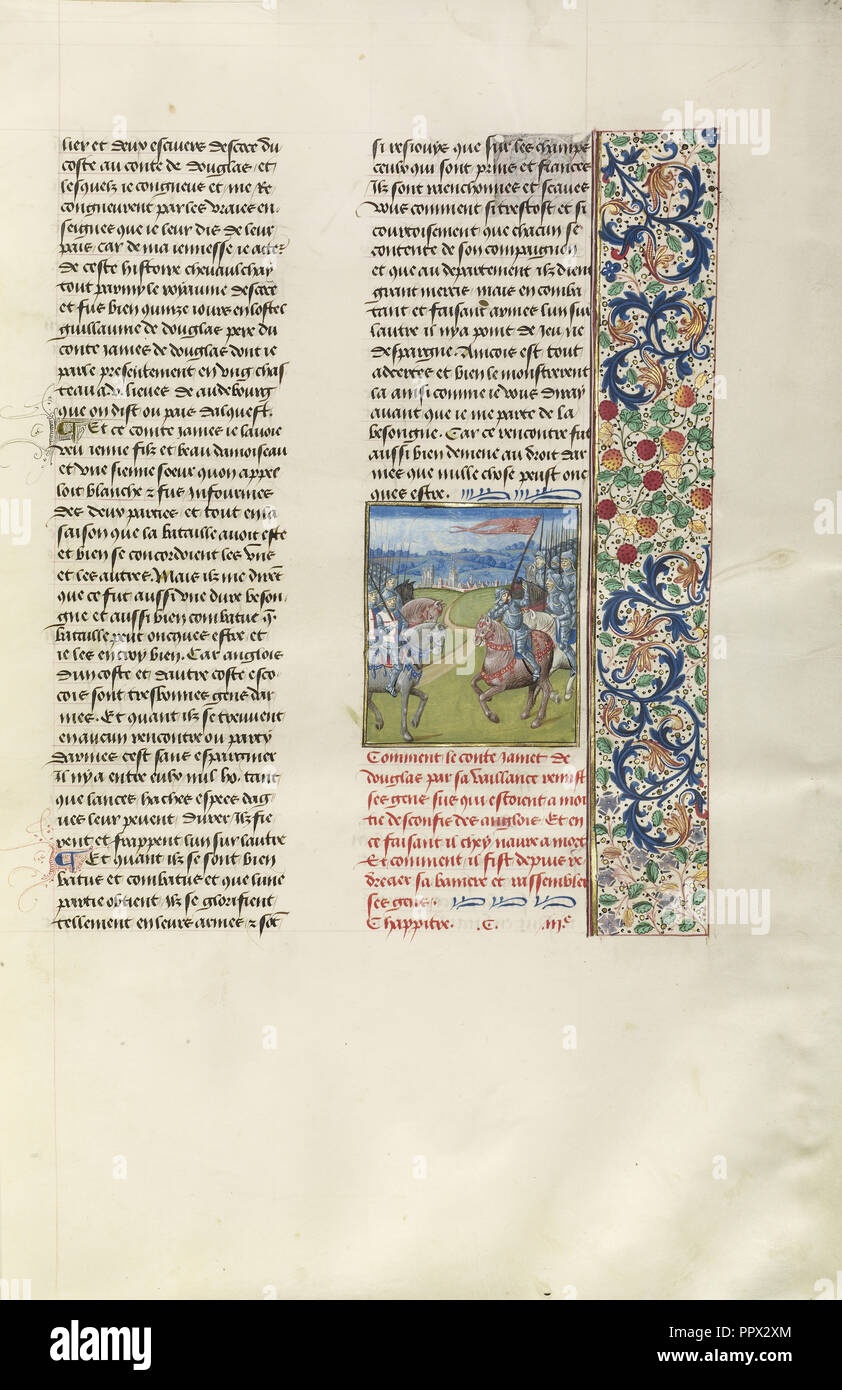 lier et deux escuiers descoce du
coste au conte de douglas et
lesquelz ie congneus et me re
congneurent par les vraies en
seignes que ie leur dis de leur
pais car de ma iennesse ie acter
de ceste histoire cheuaulchay
tout parmy le royaume descoce
et fus bien quinze iours en lostel
guillaume de douglas pere du
conte james de douglas dont ie
parle presentement en vng chas
teau a .v. lieues de
que on dist ou pais dalquest.
Et ce conte james ie lauoie
veu ienne filz et beau damoiseau
et vne sienne soeur quon appel
loit blanche & fus Infourmes
des deux parties et tout en la
saison que la bataille auoit este
et bien se concordoient les vns
et les autres. Mais ilz me dirent
que ce fut aussi vne dure beson
gne et aussi bien combatue q̃
bataille peut oncques estre et
ie les en croy bien. Car anglois
dun coste et dautre coste esco
cois sont tresbonnes gens dar
mes. Et quant ilz se treuuent
en aucun rencontre ou party
darmes cest sans espargnier
Il ny a entre eulx nul ho. tant
que lances haches espees dag
ues leur peuent durer Ilz fie
rent et frappent lun sur lautre
Et quant ilz se sont bien
batus et combatus et que lune
partie obtient Ilz se glorifient
tellement en leurs armes & sõt
si resiouys que sur les champs
ceulx qui sont prins et fiances
Ilz sont raenchonnes et scaues
vous comment si trestost et si
courtoisement que chacun se
contente de son compaignon
et que au departement ilz dient
grant mercis mais en comba
tant et faisant armes lun sur
lautre il ny a point de jeu ne
despargne. Aincois est tout
adcertes et bien le monstrerent
la ainsi comme ie vous diray
auant que ie me parte de la
besongne. Car ce rencontre fut
aussi bien demene au droit dar
mes que nulle chose peust onc
ques estre.
Comment le conte Jamet de
douglas par sa vaillance remist
ses gens sus qui estoient a moi
tie desconfis des anglois Et en
ce faisant il chey naure a mort
Et comment il fist depuis re
drecier sa baniere et rassembler
ses gens.
Chappitre. .C. .iii.e
alamy
Image ID: PPX2XM
www.alamy.com